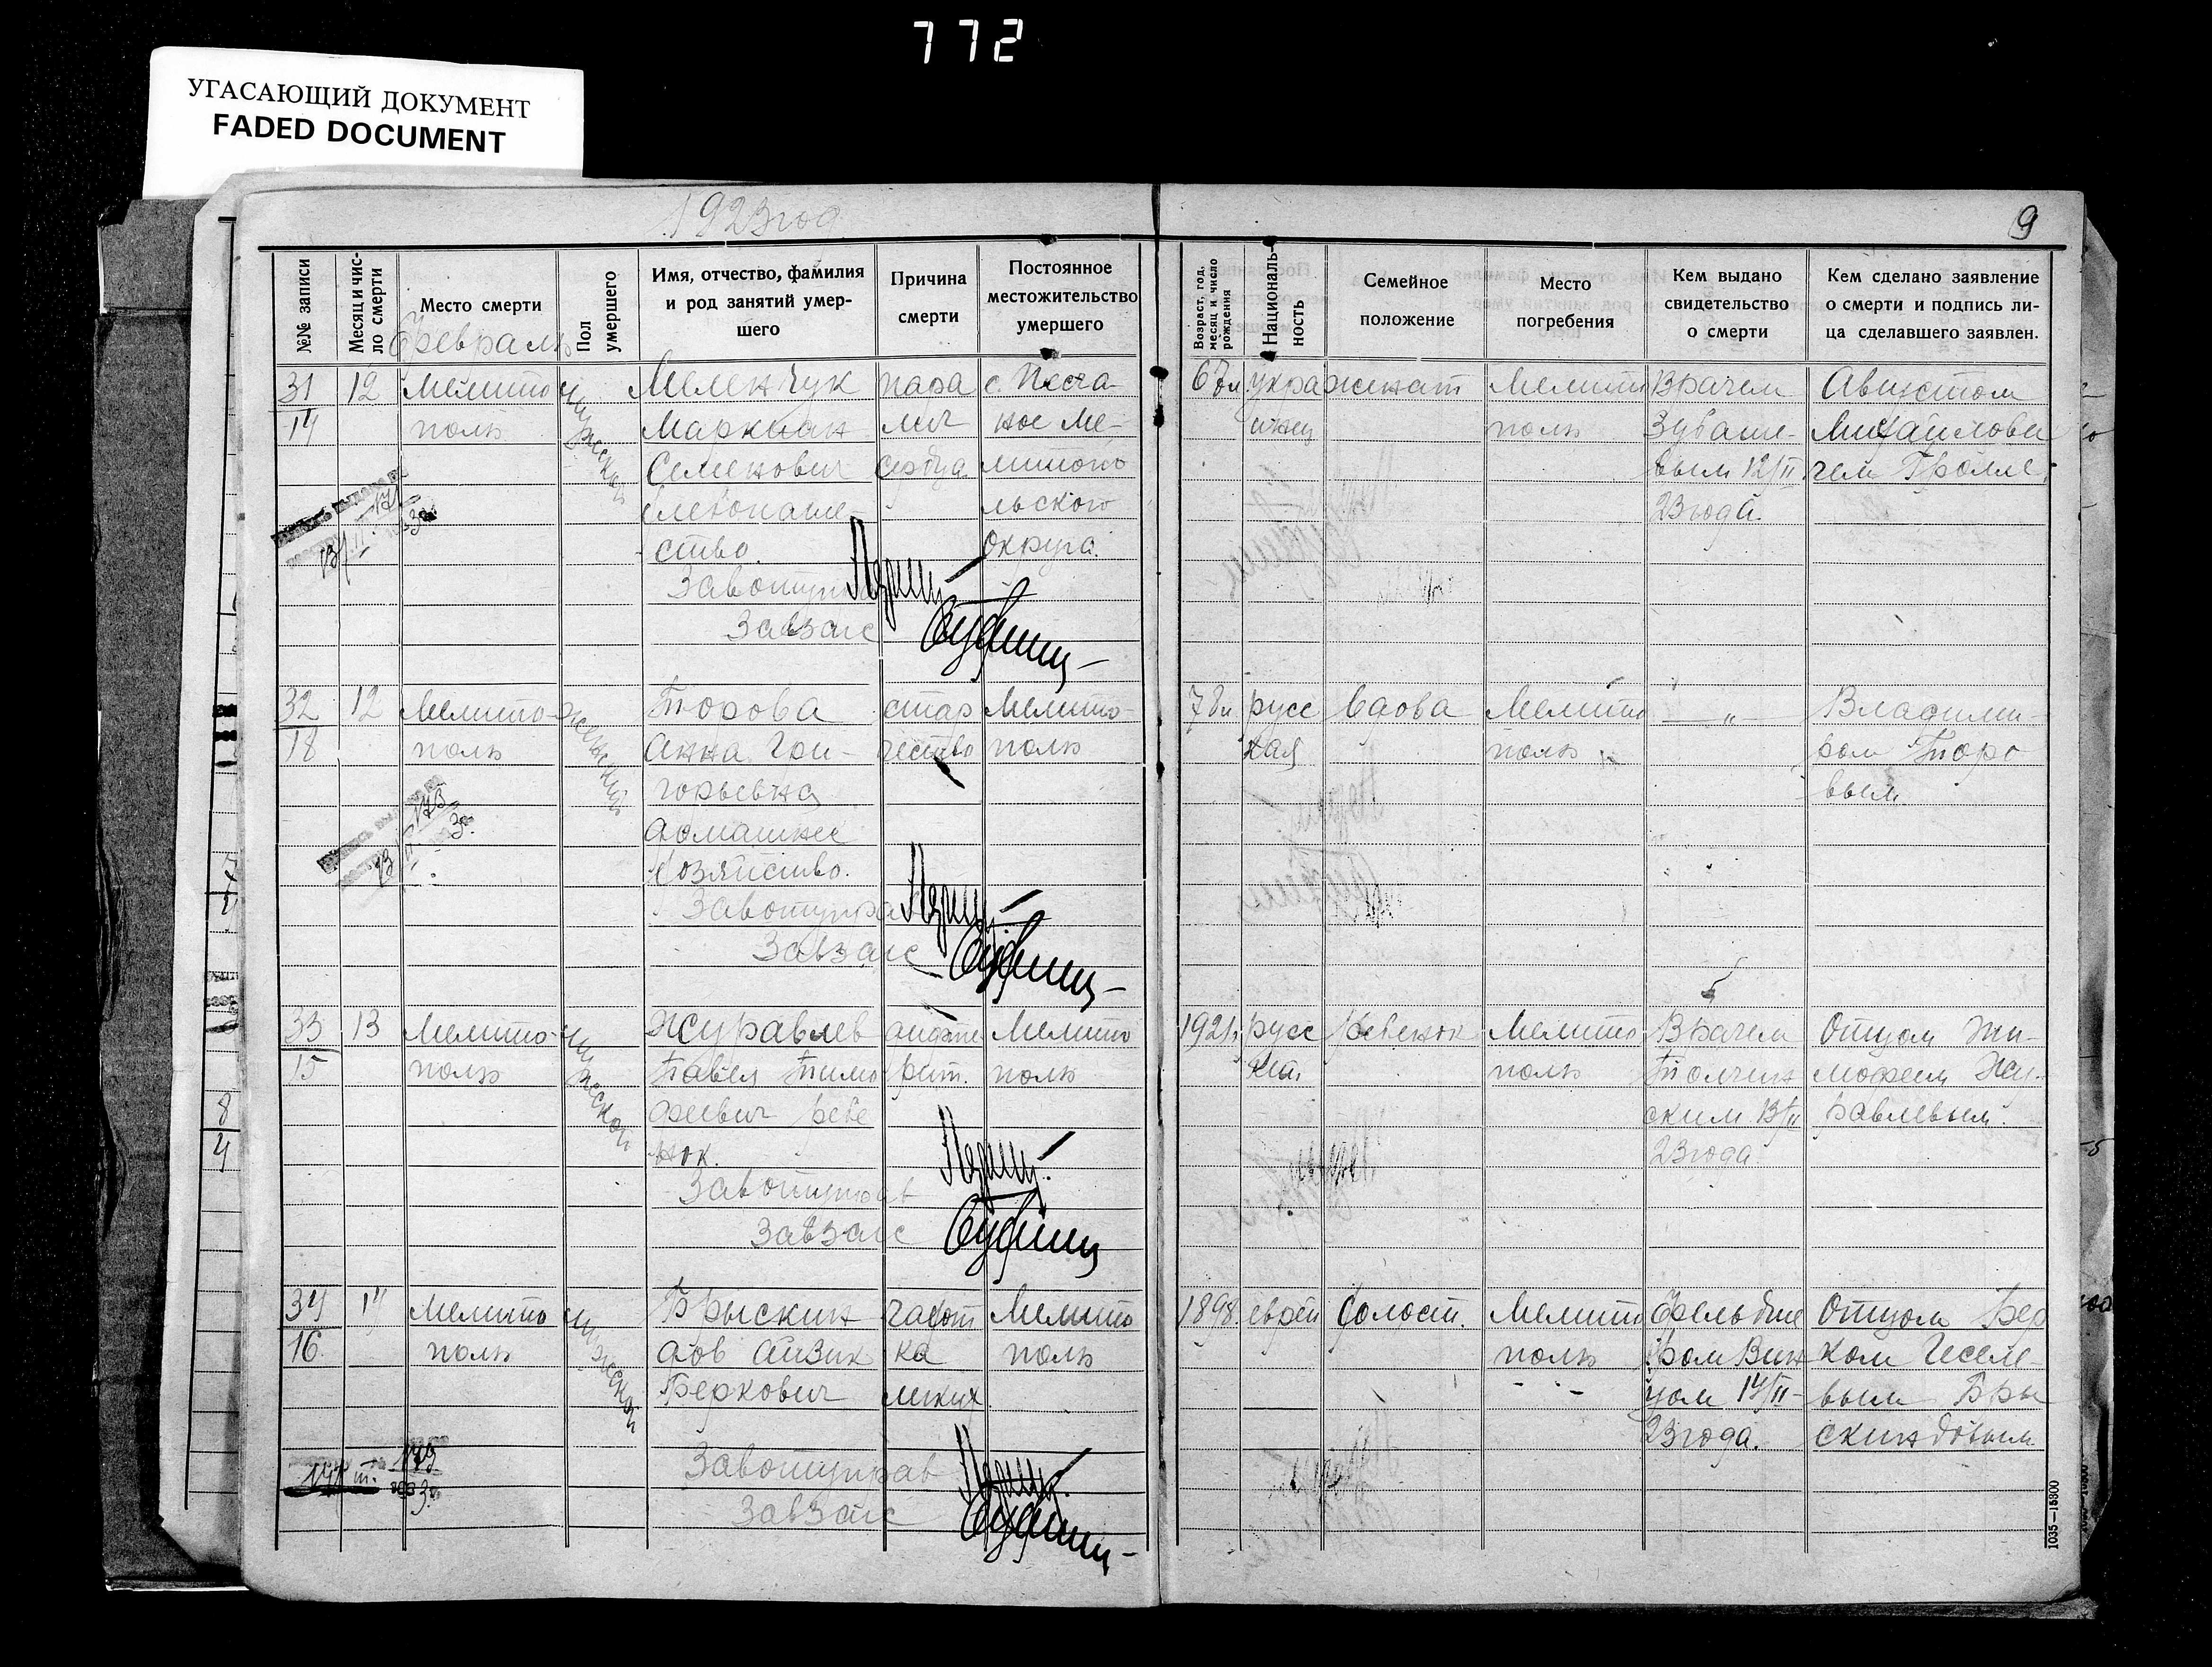 772
УГАСАЮЩИЙ ДОКУМЕНТ
FADED DOCUMENT
1923 год
9
№№ записи
Месяц и чис-
ло смерти
Место смерти
Февраль
Пол
умершего
Имя, отчество, фамилия
и род занятий умер-
шего
Причина
смерти
Постоянное
местожительство
умершего
Возраст, год,
месяц и число
рождения
Националь-
ность
Семейное
положение
Место
погребения
Кем выдано
свидетельство
о смерти
Кем сделано заявление
о смерти и подпись ли-
ца сделавшего заявлен.
31
14
12
Мелито
поль
мужской
Меленчук
Маркиан
Семенович
хлебопаше-
ство
пара
лич
сердца
с. Песча-
ное Ме-
литопо
льского
округа.
67 л.
укра
инец
женат
Мелито
поль
Врачем
Зубаше-
вым 12/II
23 года.
Августом
Михайлови
чем Гролле
Завотуправ
Завзагс
32
18
12
Мелито-
поль
женский
Торова
Анна Гри-
горьевна
домашнее
хозяйство.
стар
чество
Мелито-
поль
78 л.
русс
кая
вдова
Мелито
поль
— „ —
Владими-
ром Торо
вым
Завотуправ
Завзагс
33
15
13
Мелито-
поль
мужской
Журавлев
Павел Тимо
феевич ребе
нок.
дифте
рит.
Мелито
поль
1921 г.
русс
кий
ребенок
Мелито
поль
Врачем
Толчин
ским 13/II
23 года
Отцом Ти-
мофеем Жу-
равлевым.
Завотуправ
Завзагс
34
16.
14
Мелито
поль
мужской
Брыскин
дов Айзик
Беркович
чахот
ка
легких
Мелито
поль
1898.
еврей
холост.
Мелито
поль
Фельдше
ром Вин
цом 14/II-
23 года.
Отцом Бер
ком Иселе-
вым Бры
скиндовым
Завотуправ
Завзагс
1035—15300